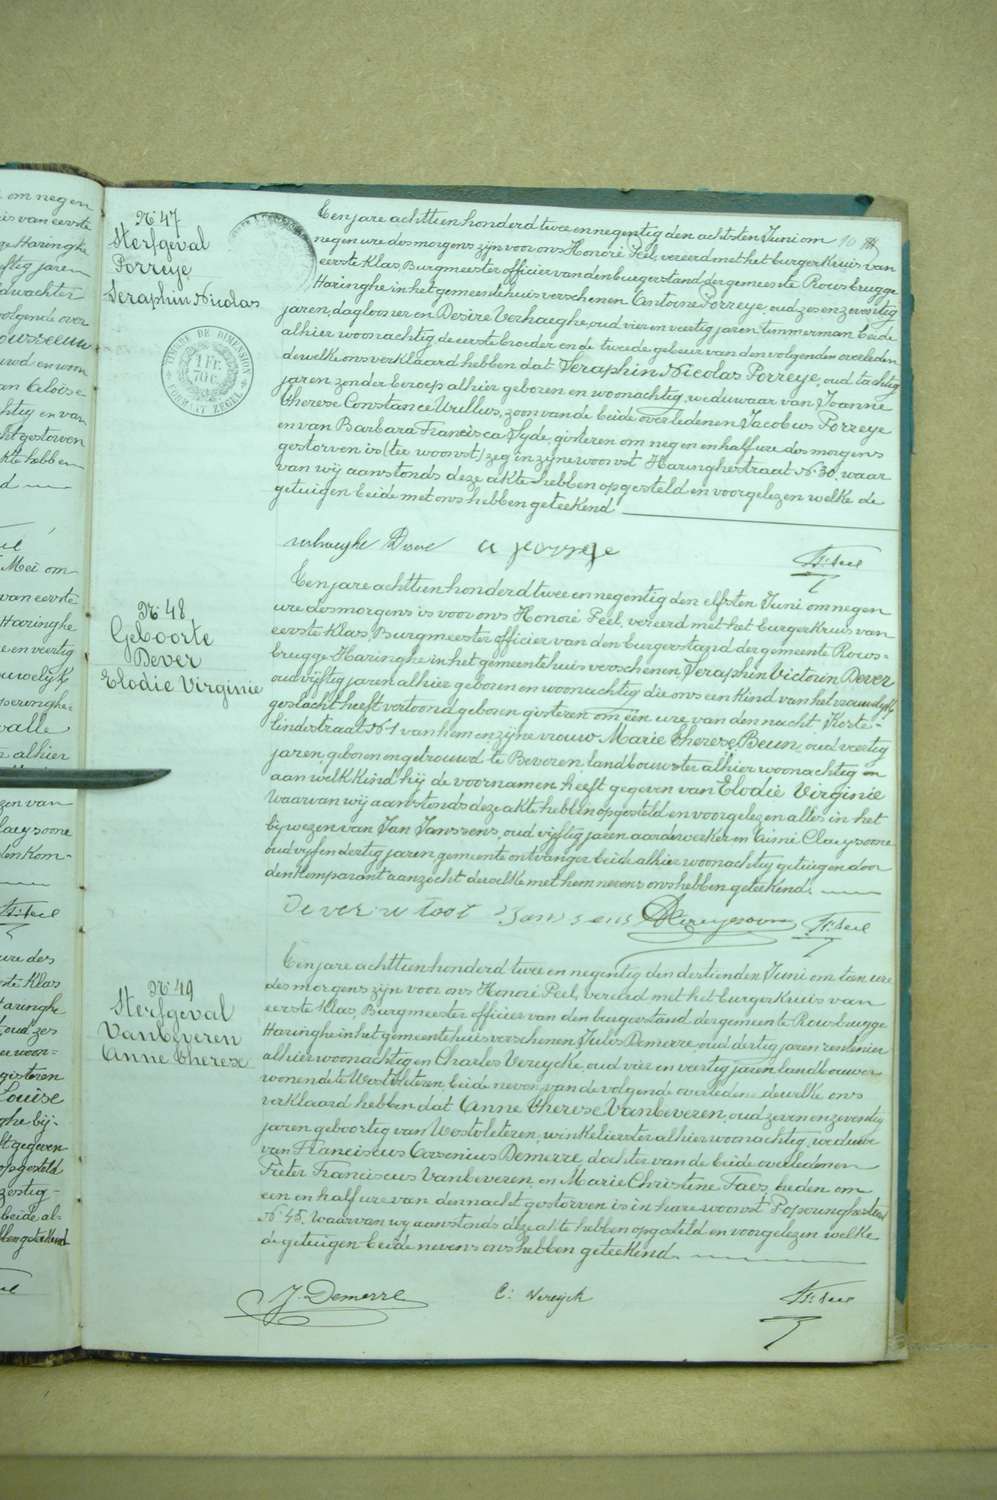 Nr 47
Sterfgeval
Porreye
Seraphin Nicolas
TIMBRE DE DIMENSION
1 FR. 70 C.
FORMAAT ZEGEL
Een jare achttien honderd twee en negentig den achtsten Juni om
negen ure des morgens zijn voor ons Honoré Peel, vereerd met het burgerkruis van
eerste klas, Burgmeester officier van den burgerstand der gemeente Rousbrugge
Haringhe in het gemeentehuis verschenen Antoine Porreye, oud zes en zeventig
jaren, daglooner en Desiré Verhaeghe, oud vier en veertig jaren, timmerman beide
alhier woonachtig de eerste broeder en de tweede gebuer van den volgenden overleden
dewelke ons verklaard hebben dat Seraphin Nicolas Porreye, oud tachtig
jaren zonder beroep alhier geboren en woonachtig, weduwaar van Joanne
Therese Constance Wullus, zoon van de beide overledenen Jacobus Porreye
en van Barbara Francisca Syde, gisteren om negen en half ure des morgens
gestorven is (ter woonst) zeg in zijne woonst Haringhestraat Nr 30, waar
van wij aanstonds deze akte hebben opgesteld en voorgelezen welke de
getuigen beide met ons hebben geteekend
verhaeghe Desire a porreye
H. Peel
Nr 48
Geboorte
Dever
Elodie Virginie
Een jare achttien honderd twee en negentig den elfsten Juni om negen
ure des morgens is voor ons Honoré Peel, vereerd met het burgerkruis van
eerste klas, Burgmeester officier van den burgerstand der gemeente Rous-
brugge Haringhe in het gemeentehuis verschenen, Seraphin Victorin Dever
oud vijftig jaren alhier geboren en woonachtig die ons een kind van het vrouwelijk
geslacht heeft vertoond geboren gisteren om een ure van den nacht Korte-
lindestraat Nr 1 van hem en zijne vrouw Marie Therese Beun, oud veertig
jaren geboren en getrouwd te Beveren, landbouwster alhier woonachtig en
aan welk kind hij de voornamen heeft gegeven van Elodie Virginie
Waarvan wij aanstonds deze akte hebben opgesteld en voorgelezen alles in het
bijwezen van Jan Janssens, oud vijftig jaren aardewerker en Aimé Claeysoone
oud vijf en dertig jaren, gemeente ontvanger beide alhier woonachtig getuigen door
den komparant aanzocht dewelke met hem nevens ons hebben geteekend.
Janssens A Claeysoone H. Peel
Nr 49
Sterfgeval
Vanbeveren
Anne Therese
Een jare achttien honderd twee en negentig den dertienden Juni om tien ure
des morgens zijn voor ons Honoré Peel, vereerd met het burgerkruis van
eerste klas, Burgmeester officier van den burgerstand der gemeente Rousbrugge
Haringhe in het gemeentehuis verschenen Jules Demerre, oud dertig jaren rentenier
alhier woonachtig en Charles Vereycke, oud vier en veertig jaren landbouwer
wonende te Westvleteren, beide neven van de volgende overledene dewelke ons
verklaard hebben dat Anne Therese Vanbeveren, oud zeven en zeventig
jaren geboortig van Westvleteren, winkelierster alhier woonachtig, weduwe
van Franciscus Arsenius Demerre dochter van de beide overledenen
Pieter Franciscus Vanbeveren en Marie Christine Faes, heden om
een en half ure van den nacht gestorven is in hare woonst Poperinghestraat
Nr 45. Waarvan wij aanstonds deze akte hebben opgesteld en voorgelezen welke
de getuigen beide nevens ons hebben geteekend.
J. Demerre C: Vereyck H. Peel